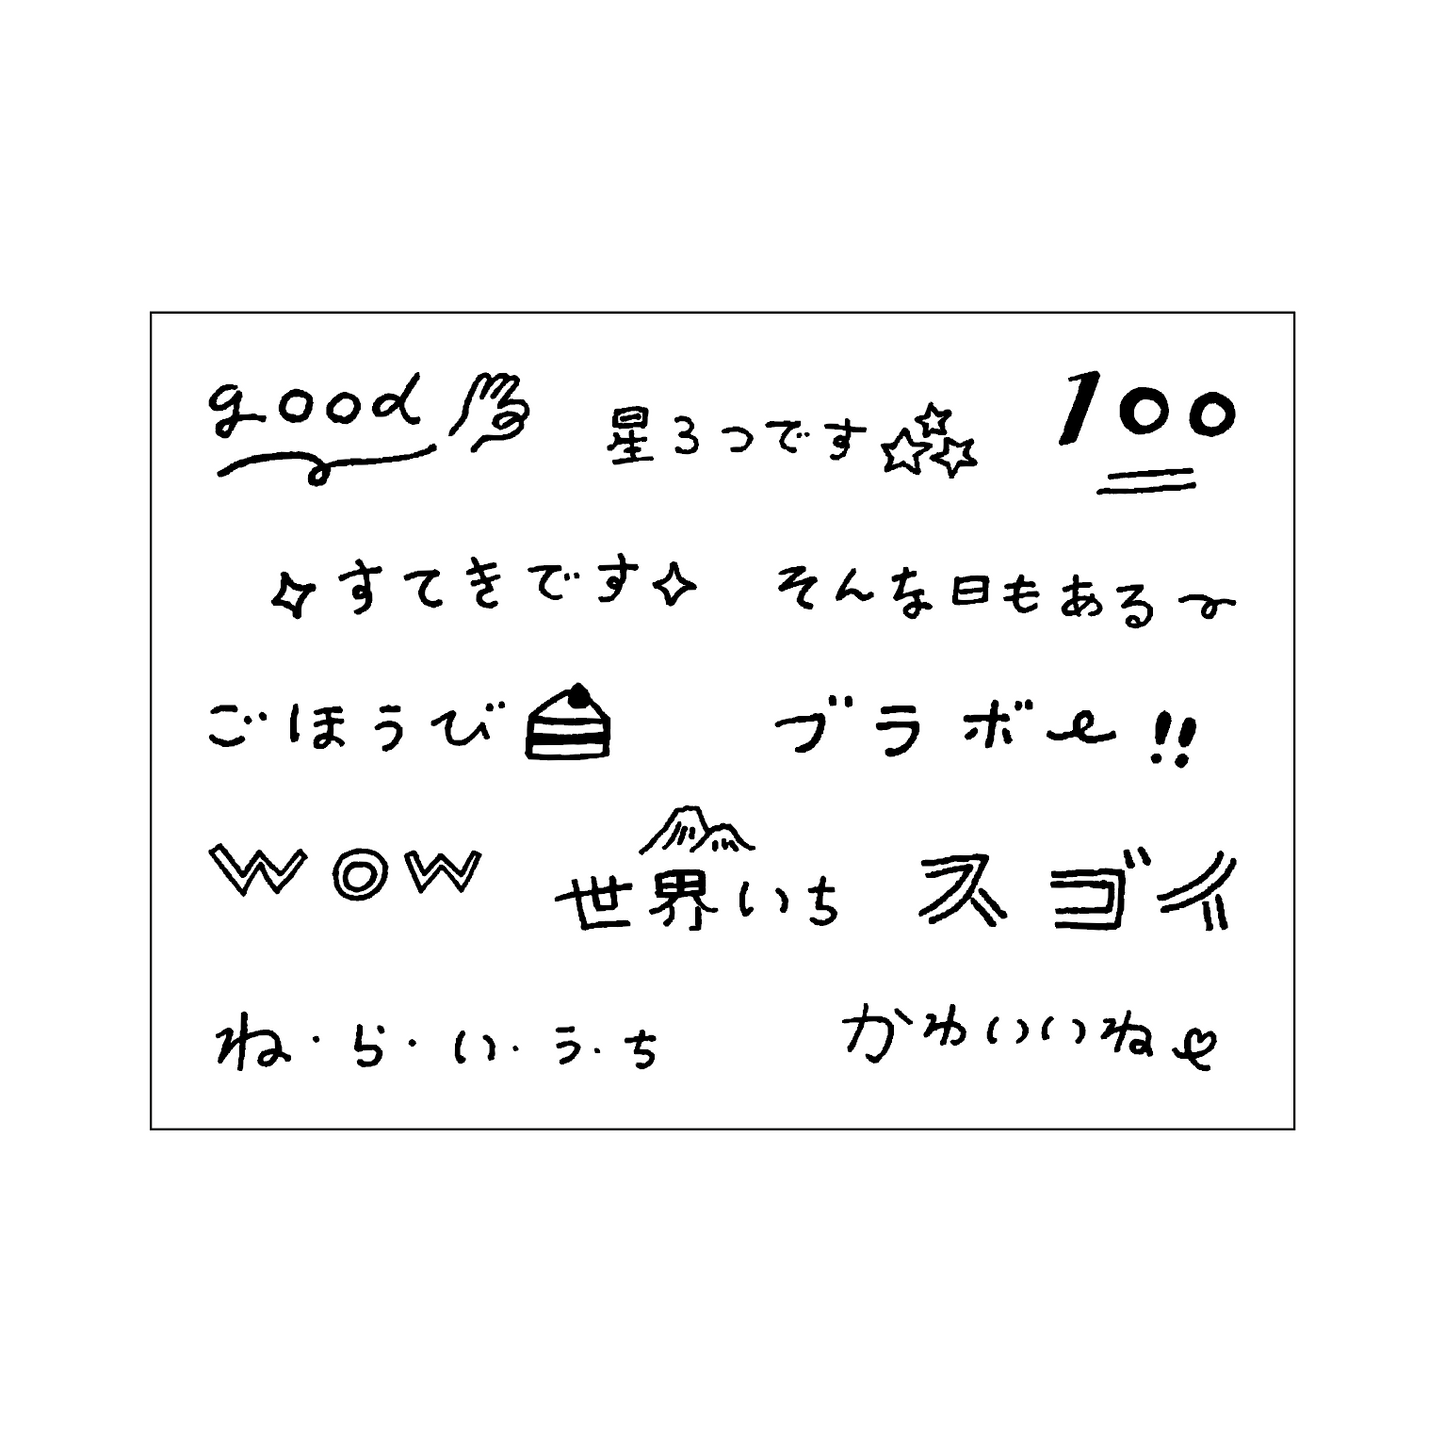 good
星3つです
100
すてきです
そんな日もある〜
ごほうび
ブラボー!!
WOW
世界いち
スゴイ
ね・ら・い・う・ち
かわいいね